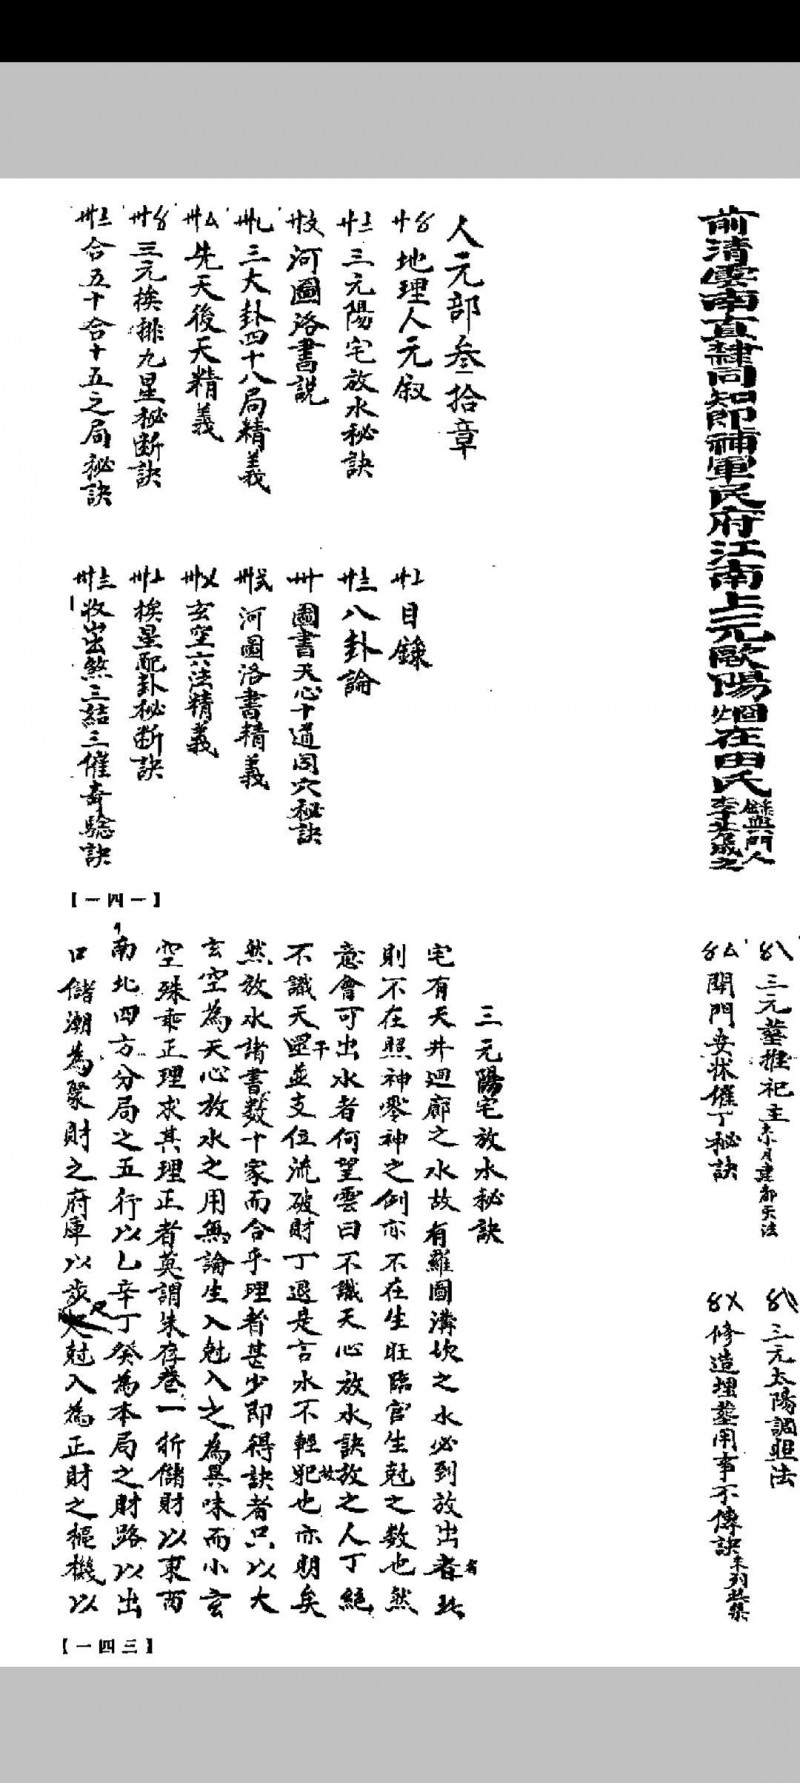 前清雲南直隸同知即補軍民府江南上元歐陽烟在田氏
鑑盟門人
李芳盛之
人元部叁拾章
地理人元叙
目錄
三元陽宅放水秘訣
八卦論
河圖洛書説
圖書天心十道同穴秘訣
三大卦四十八局精義
河圖洛書精義
先天後天精義
玄空六法精義
三元挨排九星秘断訣
挨星配卦秘断訣
合五十合十五之局秘訣
收山出煞三結三催奇驗訣
【一四一】
三元墓推祀主
三元太陽調照法
開門安牀催丁秘訣
修造埋墓用事不傳訣
三元陽宅放水秘訣
宅有天井迴廊之水故有羅圖溝坎之水必到放出者此
則不在照神零神之例亦不在生旺臨官生尅之数也然
意會可出水者何望雲曰不識天心放水訣放之人丁絕
不識天罡並干支位流破財丁退是言水不輕犯也亦明矣
然放水諸書数十家而合乎理者甚少即得訣者只以大
玄空為天心放水之用無論生入尅入之為異味而小玄
空殊乖正理求其理正者莫謂朱存卷一所儲財以東西
南北四方分局之五行以乙辛丁癸為本局之財路以出
口儲潮為聚財之府庫以步尺尅入為正財之樞機以
【一四三】